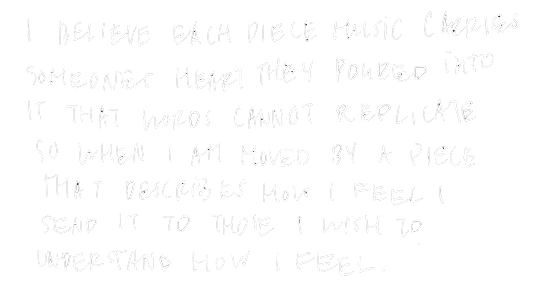 I BELIEVE EACH PIECE MUSIC CARRIES
SOMEONES HEART THEY POURED INTO
IT THAT WORDS CANNOT REPLICATE
SO WHEN I AM MOVED BY A PIECE
THAT DESCRIBES HOW I FEEL I
SEND IT TO THOSE I WISH TO
UNDERSTAND HOW I FEEL.